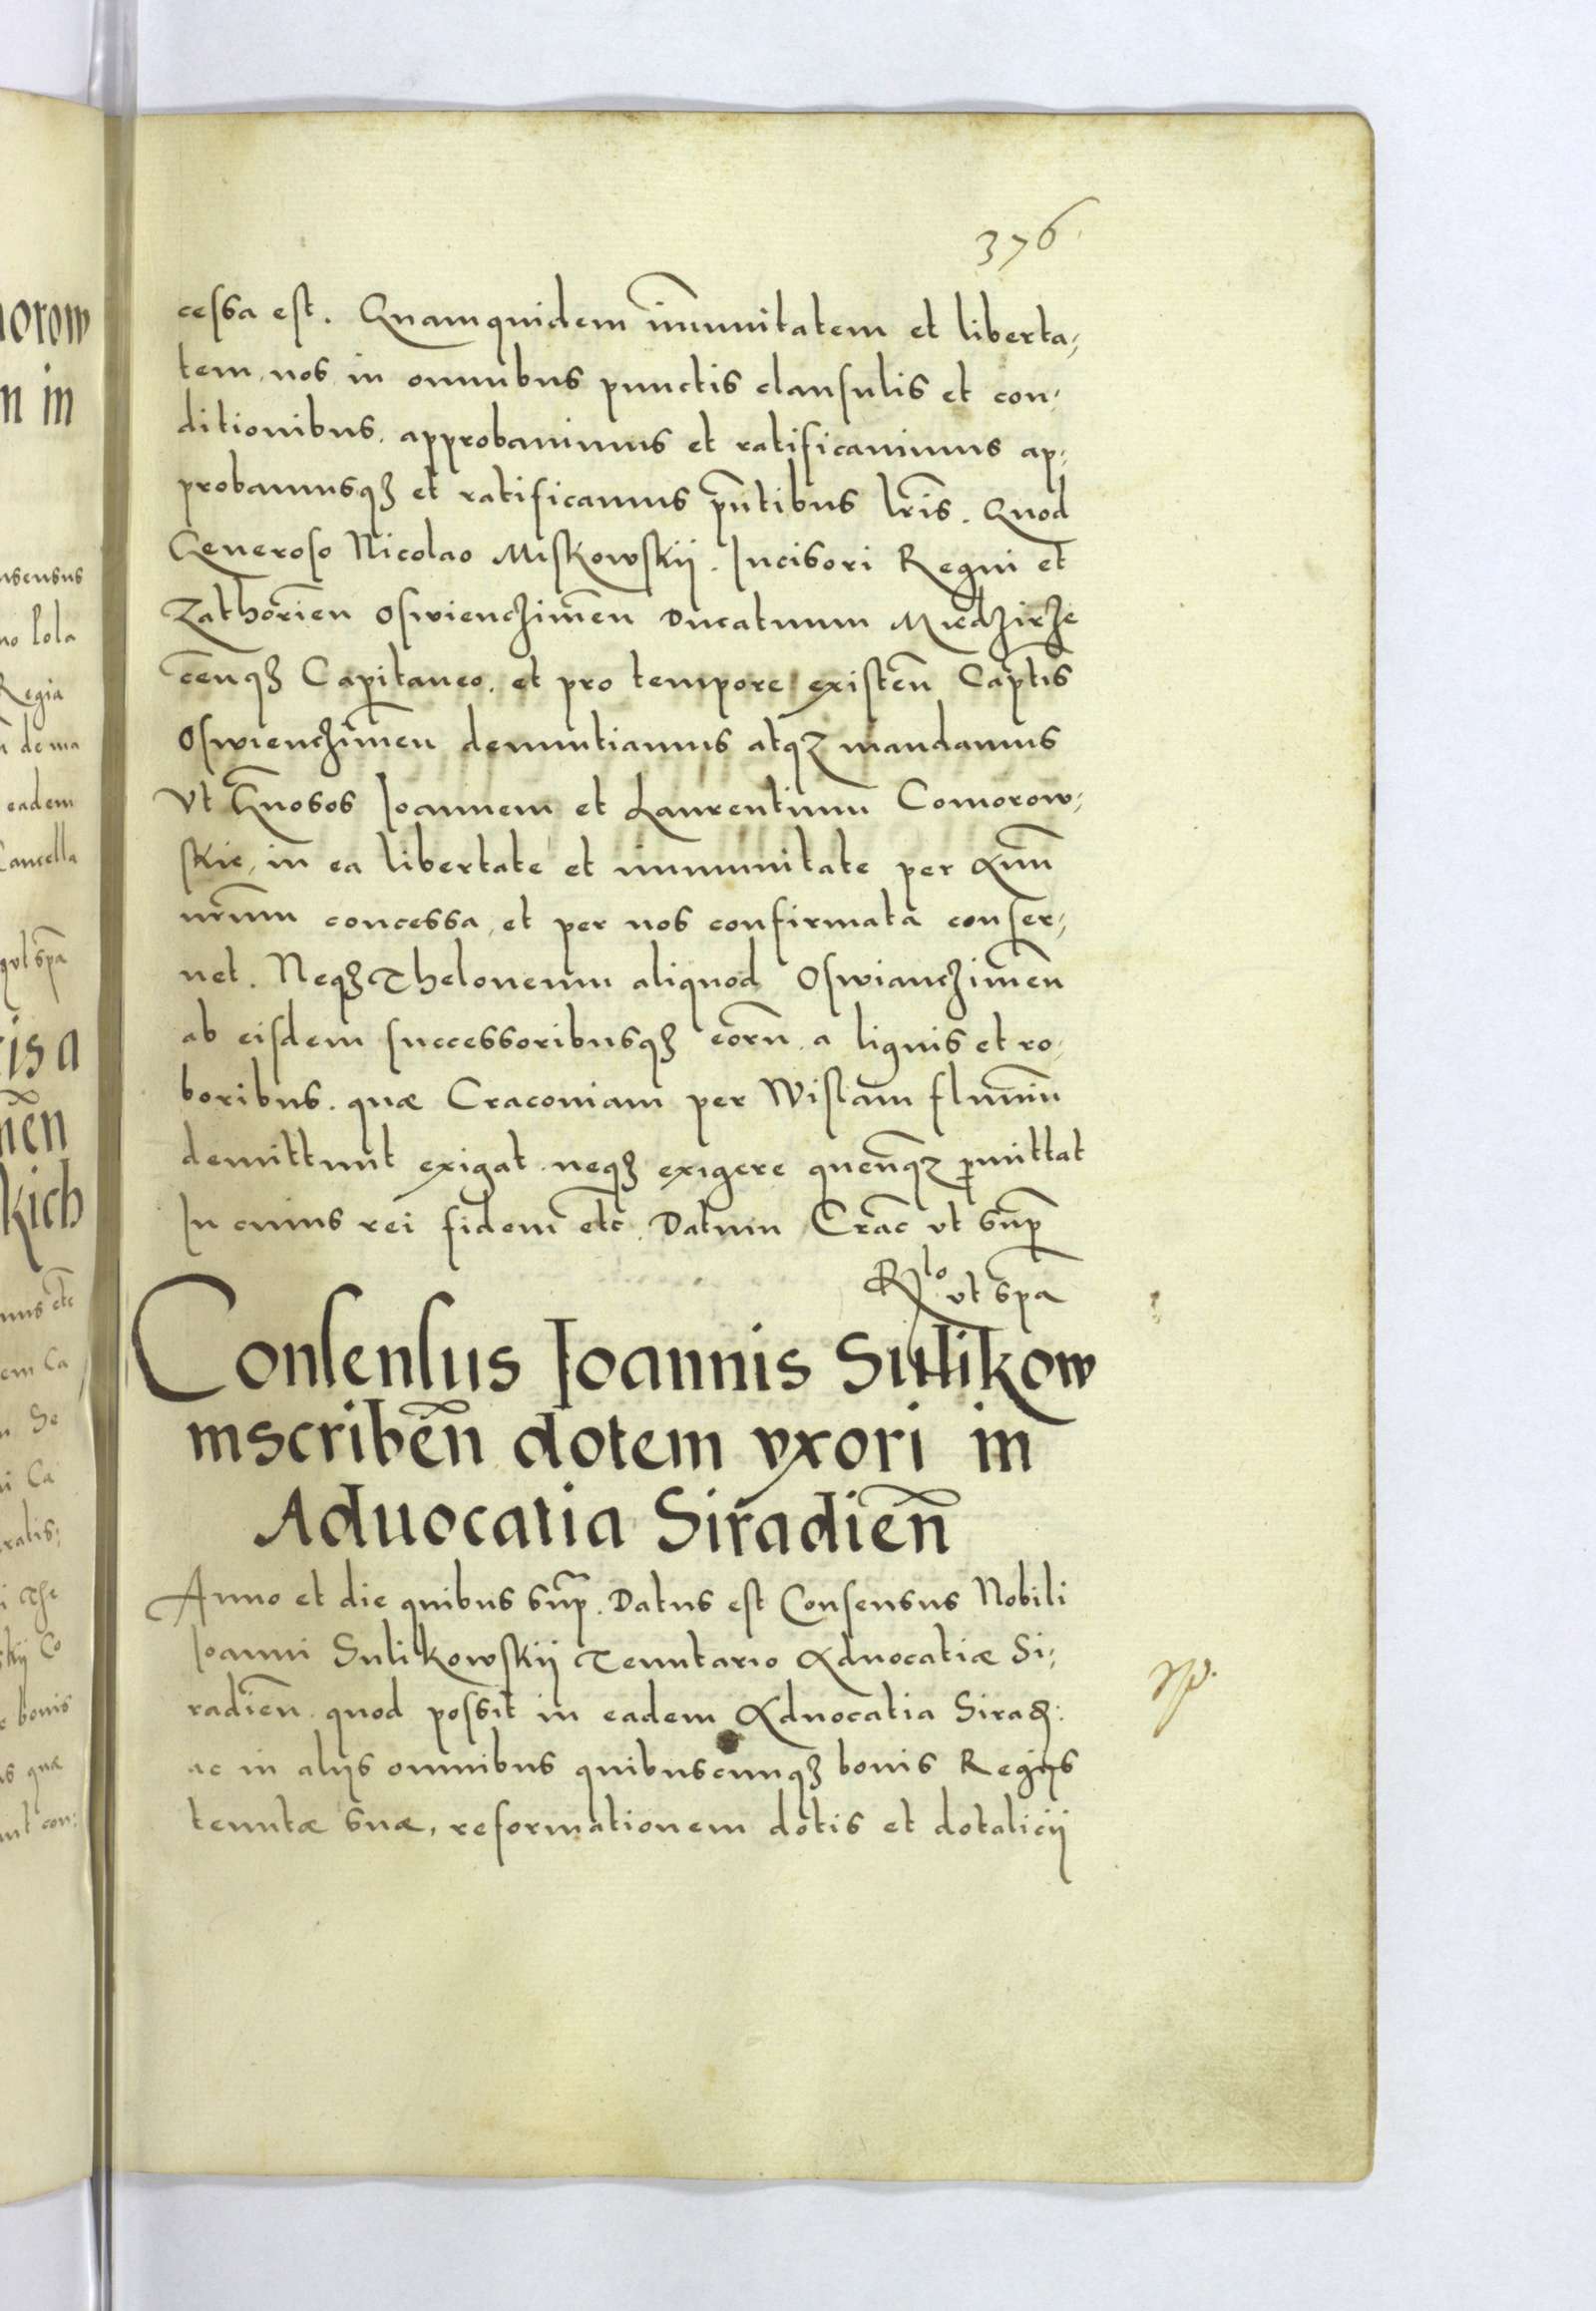 376
cessa est. Quamquidem im̄unitatem et liberta,
tem, nos in omnibus punctis clausulis et con,
ditionibus. approbauimus et ratificauimus ap,
probamusqꝫ et ratificamus pn̄tibus lr̄is. Quod
Generoso Nicolao Miskowskij. Incisori Regni et
Zathorien̄ Oswienczimen̄ Ducatuum Miedzirze
cen̄qꝫ Capitaneo. et pro tempore existen̄ Capt̄is
Oswienczimen̄ denuntiamus atqꝫ mandamus
Vt Gn̄osos Ioannem et Laurentium Comorow,
skie, in ea libertate et immunitate per Auū
nr̄mm concessa, et per nos confirmata conser,
uet. Neqꝫ Theloneum aliquod Oswianczimen̄
ab eisdem successoribusqꝫ eorū a lignis et ro,
boribus. quæ Craconiam per Wislam fluuiū
demittunt exigat neqꝫ exigere quenqꝫ p̱mittat
In cuius rei fidem etc̄. Datum Crac̄ vt sup̄
Rlo vt sp̄a
Consensus Ioannis Sulikow
inscriben̄ dotem vxori in
Aduocatia Siradien̄
Anno et die quibus sup̄. Datus est Consensus Nobili
Ioanni Sulikowskij Tenutario Aduocatiæ Si,
radien̄ quod possit in eadem Aduocatia Sirad:
ac in alijs omnibus quibuscunqꝫ bonis Regijs
tenutæ suæ, reformationem dotis et dotalicij